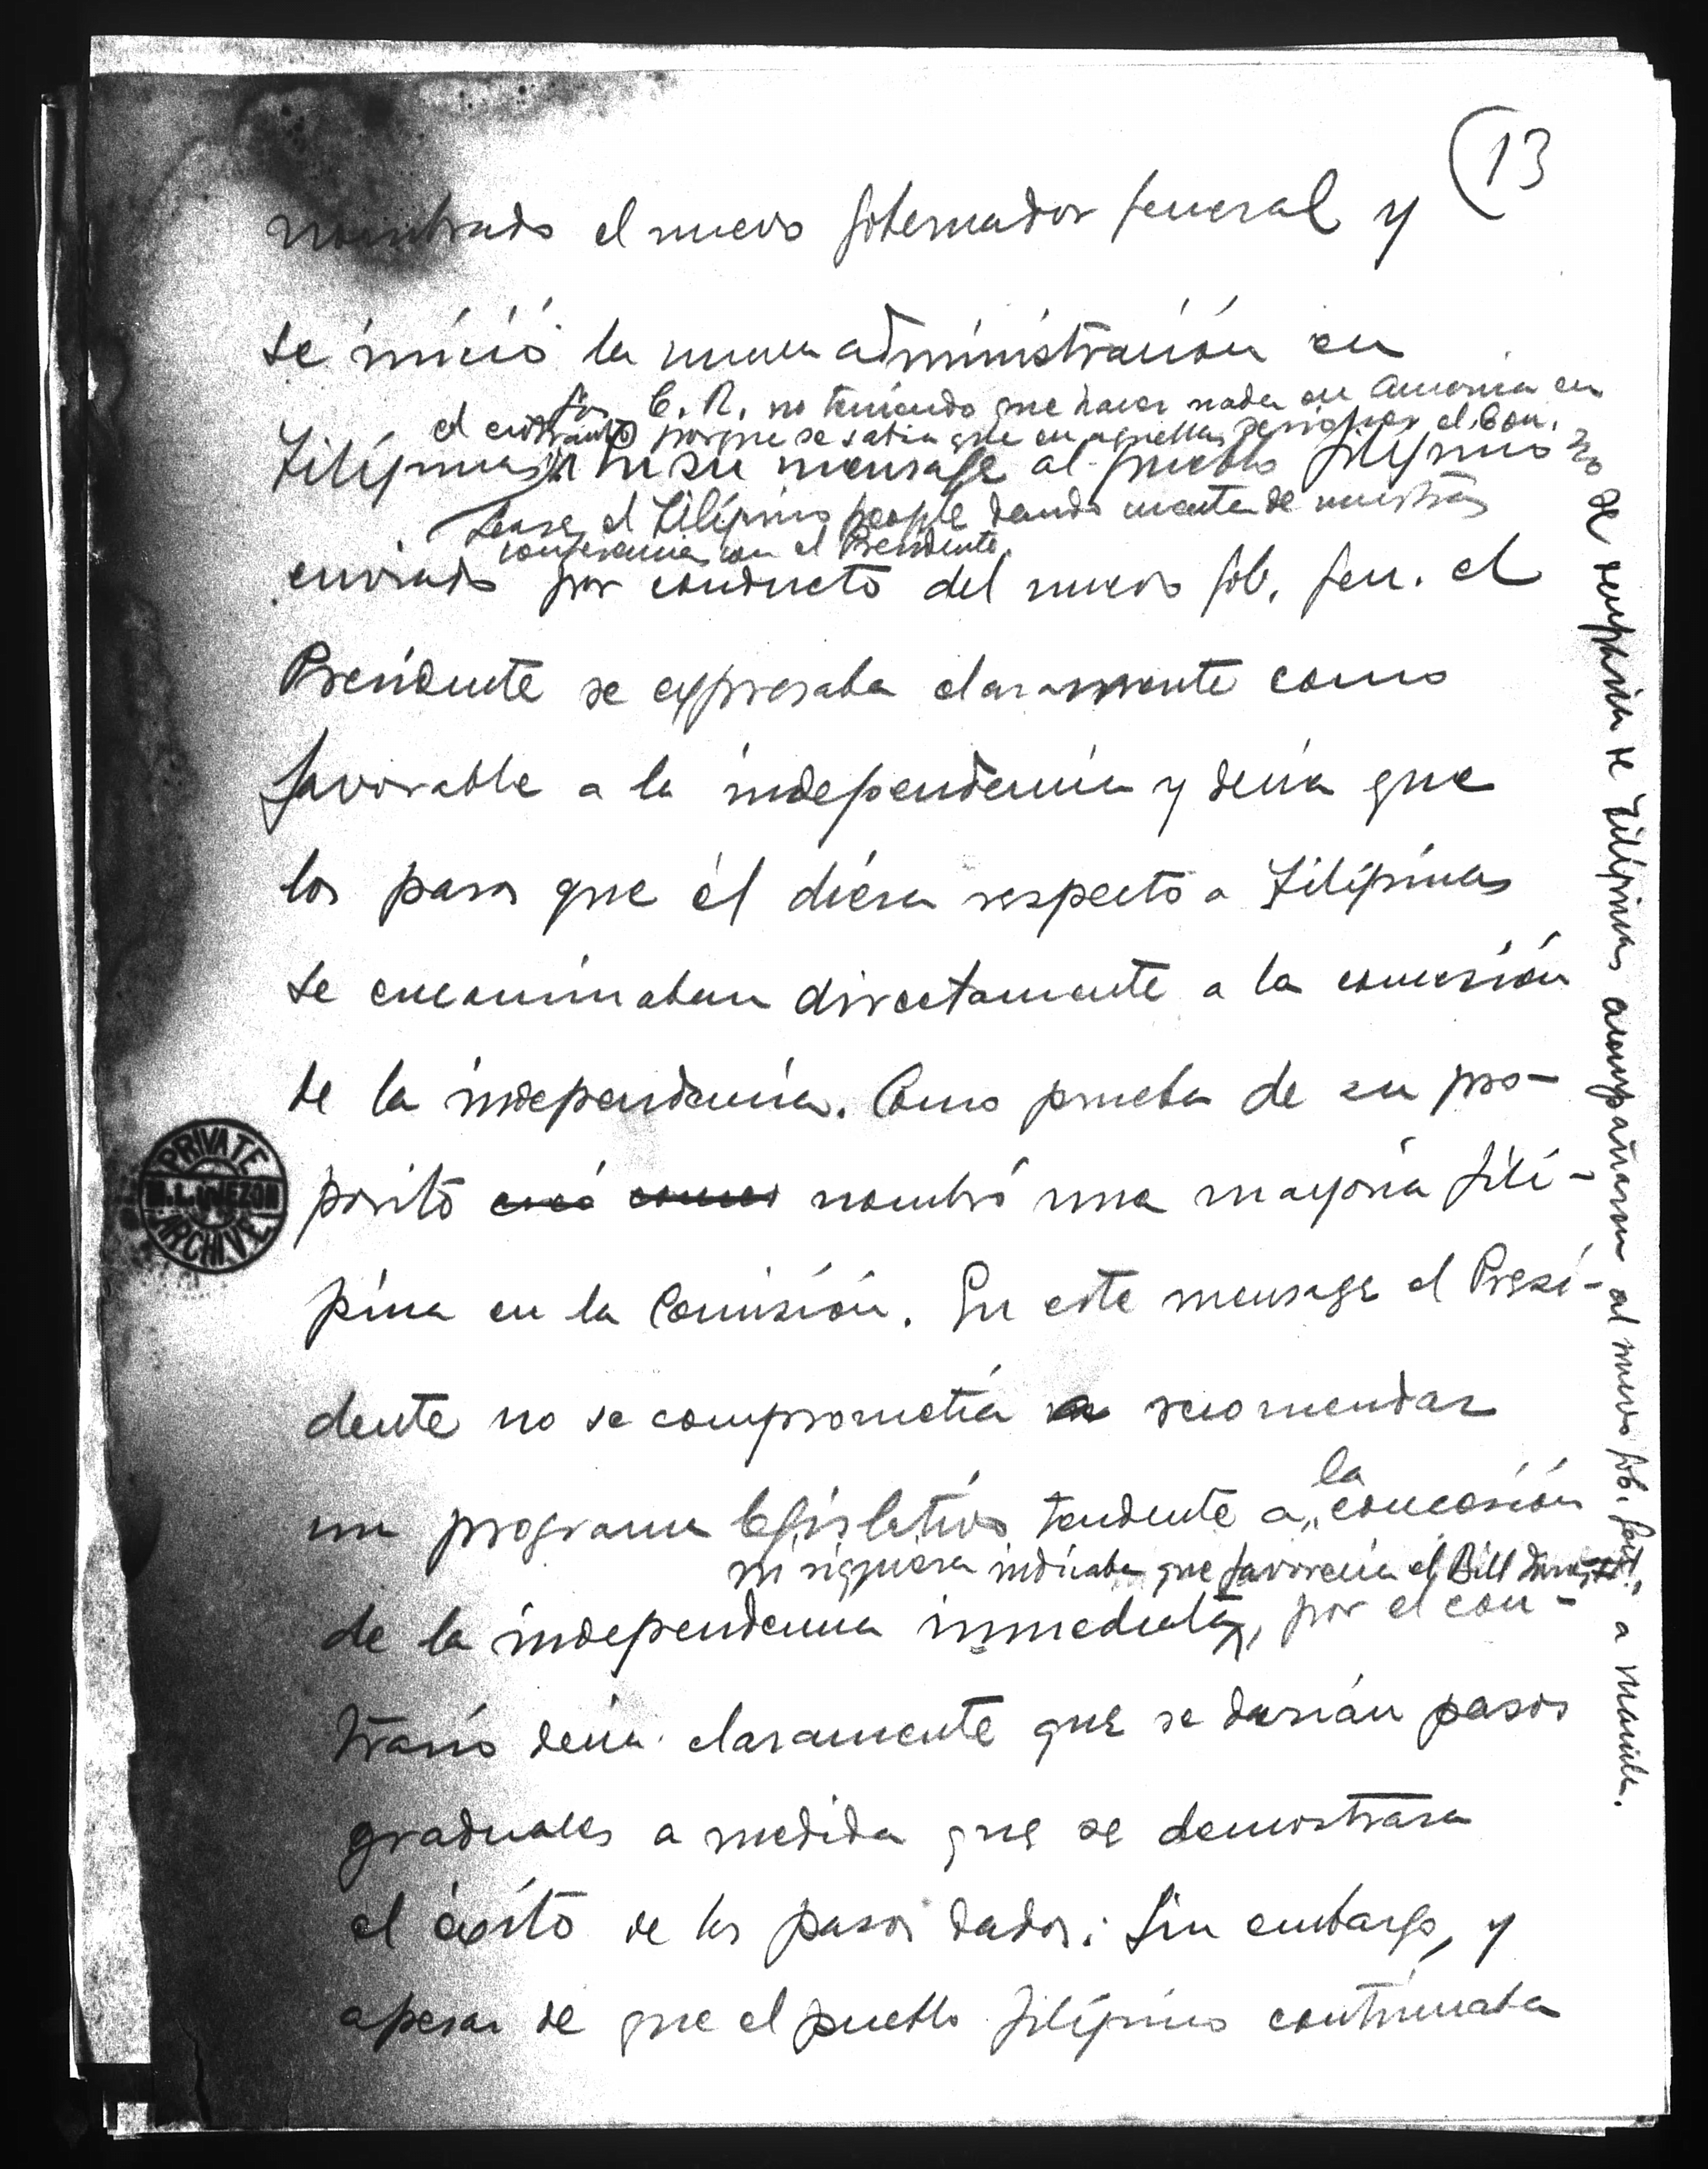 (13
nombrado el nuevo Gobernador General y
se inició la nueva administración en
los C. R. no teniendo que hacer nada en America en
el entretanto porque se sabia que en aquellas sesiones el Con.
Filipinas. En su mensage al pueblo filipino
Lease el Filipino people dando cuenta de nuestra
conferencia con el Presidente.
enviado por conducto del nuevo Gob. Gen. el
Presidente se expresaba claramente como
favorable a la independencia y decia que
los pasos que él diera respecto a Filipinas
se encaminaban directamente a la concesión
de la independencia. Como prueba de su pro-
posito creó como nombró una mayoria fili-
pina en la Comisión. En este mensage el Presi-
dente no se comprometía a recomendar
un programa legislativo tendente a la concesión
ni siquiera indicaba que favorecia el Bill
de la independencia inmediata, por el con-
trario decia claramente que se darián pasos
graduales a medida que se demostrara
el éxito de los pasos dados. Sin embargo, y
apesar de que el pueblo filipino continuaba
no se ocuparia de Filipinas acompañaron al nuevo Gob. Gral. a Manila.
PRIVATE
M.L. QUEZON
ARCHIVE